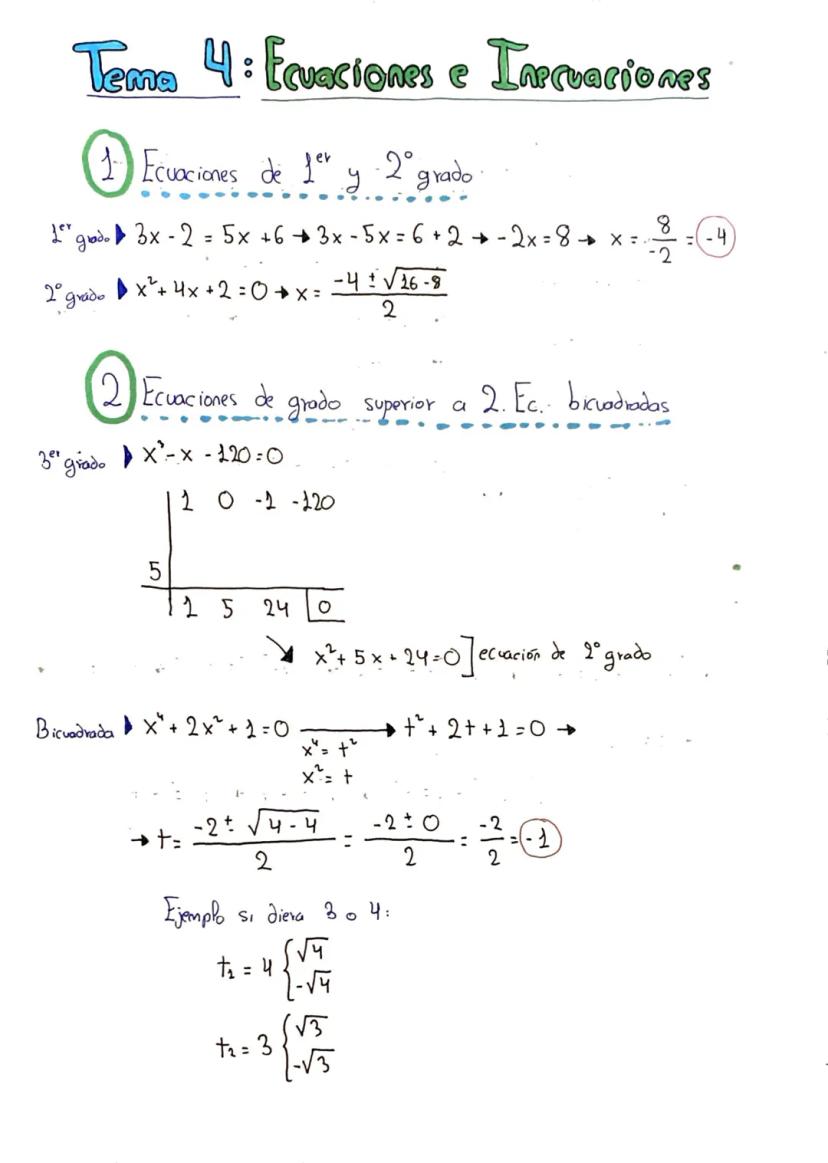 Tema 4: Ecuaciones e Inecuaciones
1 Ecuaciones de 1er y 2º grado
1er grado ▶ 3x - 2 = 5x + 6 → 3x - 5x = 6 + 2 → -2x = 8 → x = 8/-2 = -4
2º grado ▶ x² + 4x + 2 = 0 → x = (-4 ± √16-8)/2
2 Ecuaciones de grado superior a 2. Ec. bicuadradas
3er grado ▶ x³ - x - 120 = 0
1 0 -1 -120
5
1 5 24 0
↘ x² + 5x + 24 = 0] ecuación de 2º grado
Bicuadrada ▶ x⁴ + 2x² + 1 = 0 → t² + 2t + 1 = 0 →
x⁴ = t²
x² = t
→ t = (-2 ± √4-4)/2 = (-2 ± 0)/2 = -2/2 = -1
Ejemplo si diera 3 o 4:
t₁ = 4 { √4
-√4
t₂ = 3 { √3
-√3